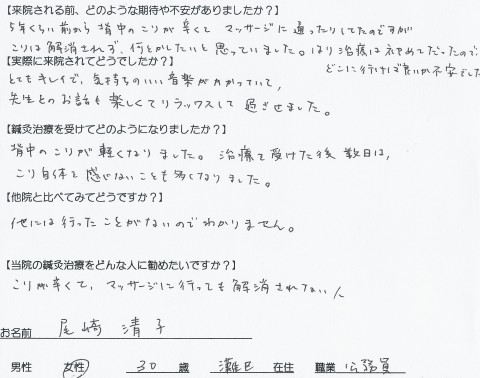 【来院される前、どのような期待や不安がありましたか？】
5年くらい前から背中のこりが辛くてマッサージに通ったりしてたのですが
こりは解消されず、何とかしたいと思っていました。はり治療は初めてだったので
【実際に来院されてどうでしたか？】
どこに行けば良いか不安でした
とてもキレイで、気持ちのいい音楽がかかっていて、
先生とのお話も楽しくてリラックスして過ごせました。
【鍼灸治療を受けてどのようになりましたか？】
背中のこりが軽くなりました。治療を受けた後数日は、
こり自体を感じないことも多くなりました。
【他院と比べてみてどうですか？】
他には行ったことがないのでわかりません。
【当院の鍼灸治療をどんな人に勧めたいですか？】
こりが辛くて、マッサージに行っても解消されない人
お名前 尾崎 清子
男性 女性 30 歳 灘区 在住 職業 公務員